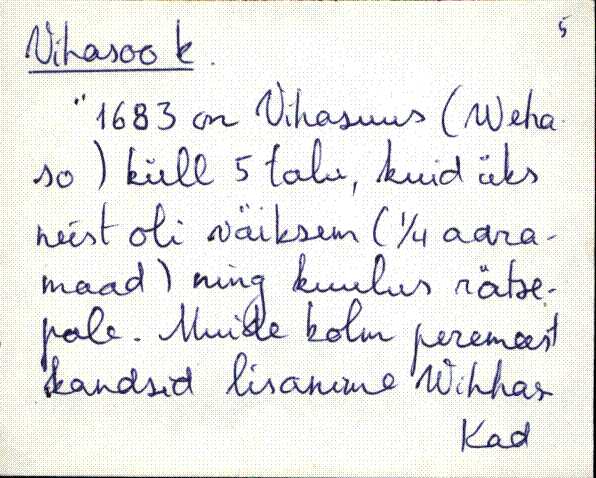 5
Vihasoo k.
"1683 on Vihasuus (Weha-
so) küll 5 talu, kuid üks
neist oli väiksem (1/4 adra-
maad) ning kuulus rätse-
pale. Muide kolm peremeest
kandsid lisanime Wihhas
Kad